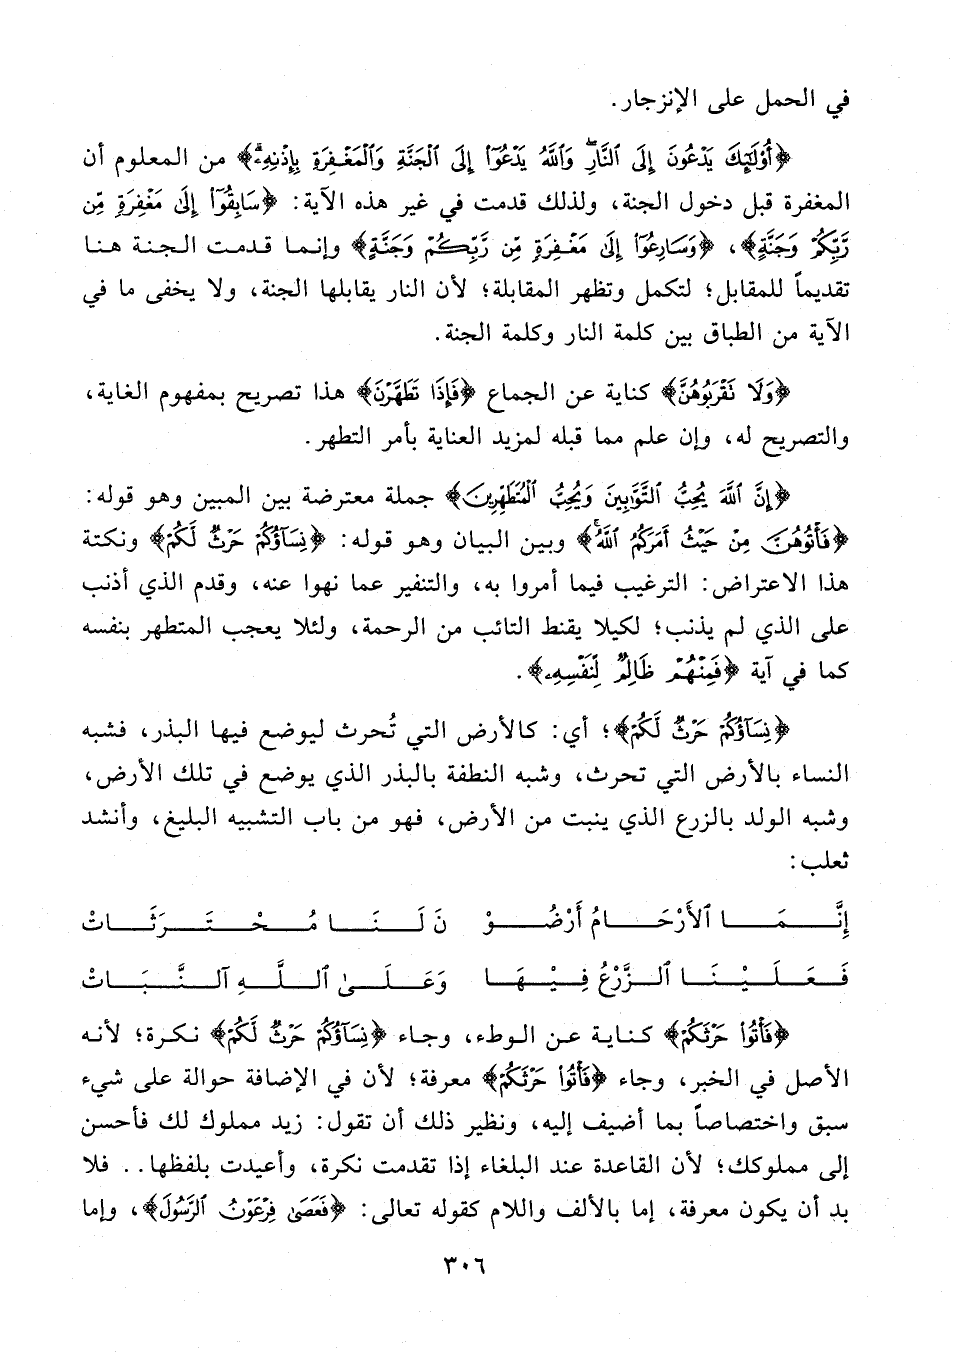 في الحمل على الإنزجار.
﴿أُوْلَٰٓئِكَ يَدْعُونَ إِلَى ٱلنَّارِۖ وَٱللَّهُ يَدْعُوٓاْ إِلَى ٱلْجَنَّةِ وَٱلْمَغْفِرَةِ بِإِذْنِهِۦۖ﴾ من المعلوم أن
المغفرة قبل دخول الجنة، ولذلك قدمت في غير هذه الآية: ﴿سَابِقُوٓاْ إِلَىٰ مَغْفِرَةٍ مِّن
رَّبِّكُمْ وَجَنَّةٍ﴾، ﴿وَسَارِعُوٓاْ إِلَىٰ مَغْفِرَةٍ مِّن رَّبِّكُمْ وَجَنَّةٍ﴾ وإنما قدمت الجنة هنا
تقديماً للمقابل؛ لتكمل وتظهر المقابلة؛ لأن النار يقابلها الجنة، ولا يخفى ما في
الآية من الطباق بين كلمة النار وكلمة الجنة.
﴿وَلَا تَقْرَبُوهُنَّ﴾ كناية عن الجماع ﴿فَإِذَا تَطَهَّرْنَ﴾ هذا تصريح بمفهوم الغاية،
والتصريح له، وإن علم مما قبله لمزيد العناية بأمر التطهر.
﴿إِنَّ ٱللَّهَ يُحِبُّ ٱلتَّوَّٰبِينَ وَيُحِبُّ ٱلْمُتَطَهِّرِينَ﴾ جملة معترضة بين المبين وهو قوله:
﴿فَأْتُوهُنَّ مِنْ حَيْثُ أَمَرَكُمُ ٱللَّهُۚ﴾ وبين البيان وهو قوله: ﴿نِسَآؤُكُمْ حَرْثٌ لَّكُمْ﴾ ونكتة
هذا الاعتراض: الترغيب فيما أمروا به، والتنفير عما نهوا عنه، وقدم الذي أذنب
على الذي لم يذنب؛ لكيلا يقنط التائب من الرحمة، ولئلا يعجب المتطهر بنفسه
كما في آية ﴿فَمِنْهُمْ ظَالِمٌ لِّنَفْسِهِۦ﴾.
﴿نِسَآؤُكُمْ حَرْثٌ لَّكُمْ﴾؛ أي: كالأرض التي تُحرث ليوضع فيها البذر، فشبه
النساء بالأرض التي تحرث، وشبه النطفة بالبذر الذي يوضع في تلك الأرض،
وشبه الولد بالزرع الذي ينبت من الأرض، فهو من باب التشبيه البليغ، وأنشد
ثعلب:
إِنَّـمَـا ٱلأَرْحَـامُ أَرْضُـوْ نَ لَـنَـا مُـحْـتَـرَثَـاتْ
فَـعَـلَـيْـنَـا ٱلـزَّرْعُ فِـيْـهَـا وَعَـلَـىٰ ٱلـلَّـهِ ٱلـنَّـبَـاتْ
﴿فَأْتُواْ حَرْثَكُمْ﴾ كناية عن الوطء، وجاء ﴿نِسَآؤُكُمْ حَرْثٌ لَّكُمْ﴾ نكرة؛ لأنه
الأصل في الخبر، وجاء ﴿فَأْتُواْ حَرْثَكُمْ﴾ معرفة؛ لأن في الإضافة حوالة على شيء
سبق واختصاصاً بما أضيف إليه، ونظير ذلك أن تقول: زيد مملوك لك فأحسن
إلى مملوكك؛ لأن القاعدة عند البلغاء إذا تقدمت نكرة، وأعيدت بلفظها.. فلا
بد أن يكون معرفة، إما بالألف واللام كقوله تعالى: ﴿فَعَصَىٰ فِرْعَوْنُ ٱلرَّسُولَ﴾، وإما
٣٠٦